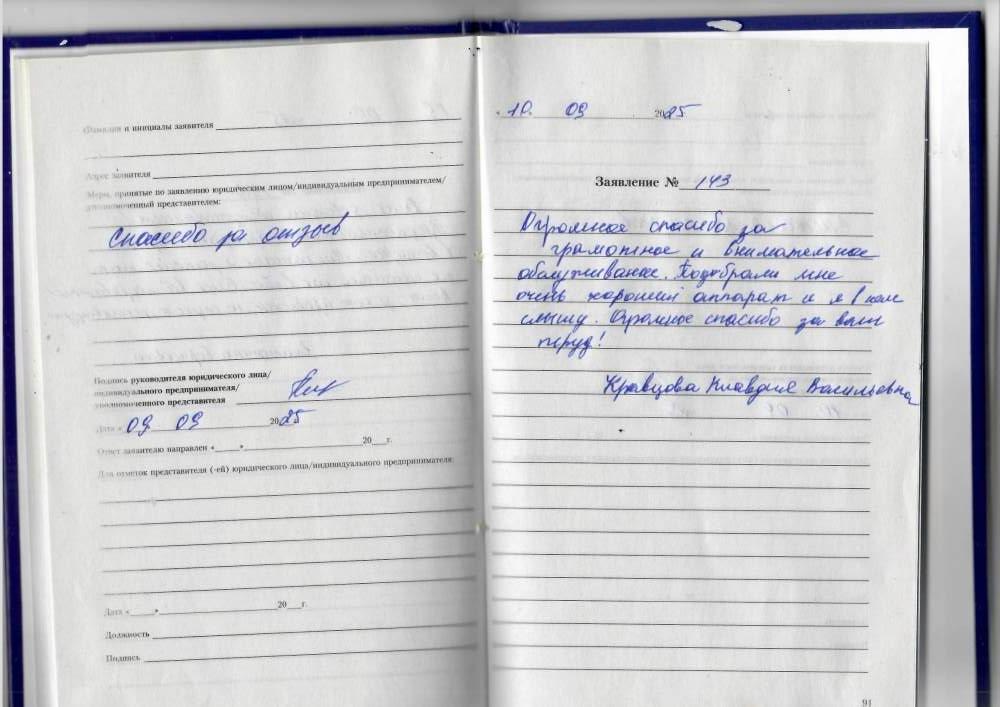 Фамилия и инициалы заявителя
Адрес заявителя
Меры, принятые по заявлению юридическим лицом/индивидуальным предпринимателем/
уполномоченный представителем:
Спасибо за отзыв
Подпись руководителя юридического лица/
индивидуального предпринимателя/
уполномоченного представителя
Дата « 09 09 2025
Ответ заявителю направлен «____»____20__г.
Для отметок представителя (-ей) юридического лица/индивидуального предпринимателя:
Дата «____»____20__г.
Должность
Подпись
« 10. 09 2025
Заявление № 143
Огромное спасибо за
грамотное и внимательное
обслуживание. Подобрали мне
очень хороший аппарат и я в нем
слышу. Огромное спасибо за ваш
труд!
Кравцова Клавдия Васильевна
91